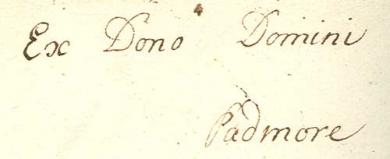 Ex Dono Domini
Padmore